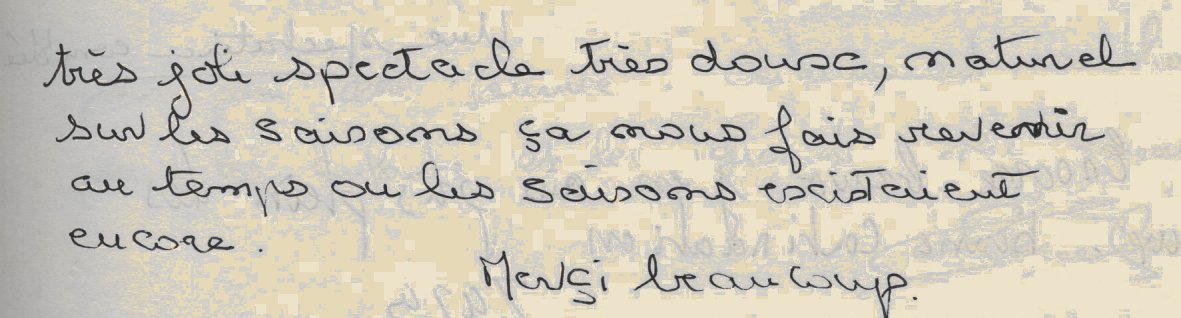 très joli spectacle très doux, naturel
sur les saisons ça nous fais revenir
au temps ou les saisons existaient
encore.
Merçi beaucoup.